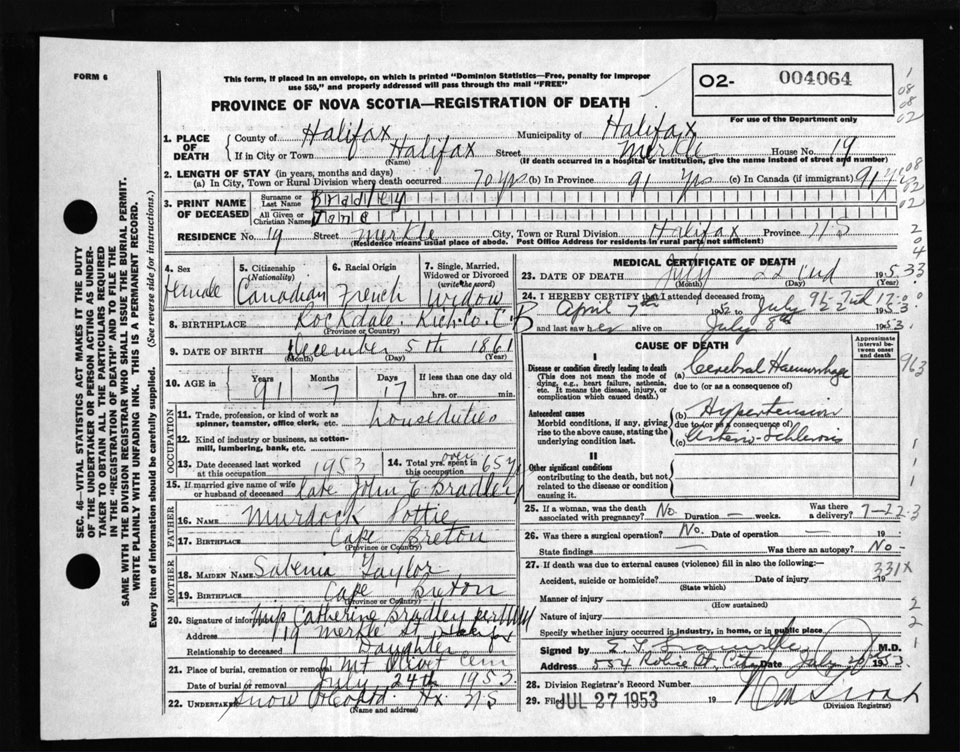 FORM 6
This form, if placed in an envelope, on which is printed "Dominion Statistics—Free, penalty for improper
use $50," and properly addressed will pass through the mail "FREE"
PROVINCE OF NOVA SCOTIA—REGISTRATION OF DEATH
O2- 004064
For use of the Department only
1. PLACE OF DEATH
County of Halifax Municipality of Halifax
If in City or Town Halifax Street Merkle House No. 19
(Name) (If death occurred in a hospital or institution, give the name instead of street and number)
2. LENGTH OF STAY (in years, months and days)
(a) In City, Town or Rural Division where death occurred 70 yrs (b) In Province 91 yrs (c) In Canada (if immigrant) 91
3. PRINT NAME OF DECEASED
Surname or Last Name Bradley
All Given or Christian Names Jane
RESIDENCE No. 19 Street Merkle City, Town or Rural Division Halifax Province N S
(Residence means usual place of abode. Post Office Address for residents in rural parts not sufficient)
4. Sex female
5. Citizenship (Nationality) Canadian
6. Racial Origin French
7. Single, Married, Widowed or Divorced (write the word) Widow
8. BIRTHPLACE Rockdale Rich. Co. C B
(Province or Country)
9. DATE OF BIRTH December 5th 1861
(Month) (Day) (Year)
10. AGE in Years Months Days If less than one day old
91 7 17 hrs. or min.
OCCUPATION
11. Trade, profession, or kind of work as
spinner, teamster, office clerk, etc. houseduties
12. Kind of industry or business, as cotton-
mill, lumbering, bank, etc.
13. Date deceased last worked
at this occupation 1953
14. Total yrs. spent in
this occupation over 65 y
15. If married give name of wife
or husband of deceased late John Bradley
FATHER
16. NAME Murdock Pottie
17. BIRTHPLACE Cape Breton
(Province or Country)
MOTHER
18. MAIDEN NAME Sabenia Taylor
19. BIRTHPLACE Cape Breton
(Province or Country)
20. Signature of informant Miss Catherine Bradley
Address 19 Merkle St Halifax
Relationship to deceased Daughter
21. Place of burial, cremation or removal Mt Olivet Cem
Date of burial or removal July 24th 1953
22. UNDERTAKER Snow Hx N S
(Name and address)
MEDICAL CERTIFICATE OF DEATH
23. DATE OF DEATH July 22nd 1953
(Month) (Day)
24. I HEREBY CERTIFY that I attended deceased from
April 7th 1952 to July 22nd 1953
and last saw her alive on July 8th 1953
CAUSE OF DEATH
Approximate interval between onset and death
I
Disease or condition directly leading to death
(This does not mean the mode of
dying, e.g., heart failure, asthenia,
etc. It means the disease, injury, or
complication which caused death.)
(a) Cerebral Haemorrhage
due to (or as a consequence of)
Antecedent causes
Morbid conditions, if any, giving
rise to the above cause, stating the
underlying condition last.
(b) Hypertension
due to (or as a consequence of)
(c) Arterio-Schlerosis
II
Other significant conditions
contributing to the death, but not
related to the disease or condition
causing it.
25. If a woman, was the death
associated with pregnancy? No. Duration — weeks. Was there a delivery?
7-22-3
26. Was there a surgical operation? No. Date of operation — 19
State findings — Was there an autopsy? No -
27. If death was due to external causes (violence) fill in also the following:—
331X
Accident, suicide or homicide? Date of injury 19
(State which)
Manner of injury
(How sustained)
Nature of injury
Specify whether injury occurred in industry, in home, or in public place
Signed by M.D.
Address 554 Robie St, City Date July 1953
28. Division Registrar's Record Number
29. Filed JUL 27 1953 19
(Division Registrar)
SEC. 46—VITAL STATISTICS ACT MAKES IT THE DUTY
OF THE UNDERTAKER OR PERSON ACTING AS UNDER-
TAKER TO OBTAIN ALL THE PARTICULARS REQUIRED
IN THE "REGISTRATION OF DEATH" AND TO FILE THE
SAME WITH THE DIVISION REGISTRAR WHO SHALL ISSUE THE BURIAL PERMIT.
WRITE PLAINLY WITH UNFADING INK. THIS IS A PERMANENT RECORD.
Every item of information should be carefully supplied. (See reverse side for instructions.)